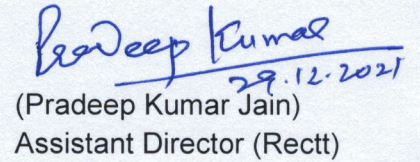 Pradeep Kumar
29.12.2021
(Pradeep Kumar Jain)
Assistant Director (Rectt)